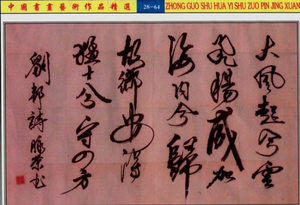 中國書畫藝術作品精選
28-64
ZHONG GUO SHU HUA YI SHU ZUO PIN JING XUAN
大風起兮雲
飛揚威加
海内兮歸
故鄉安得
猛士兮守四方
劉邦詩